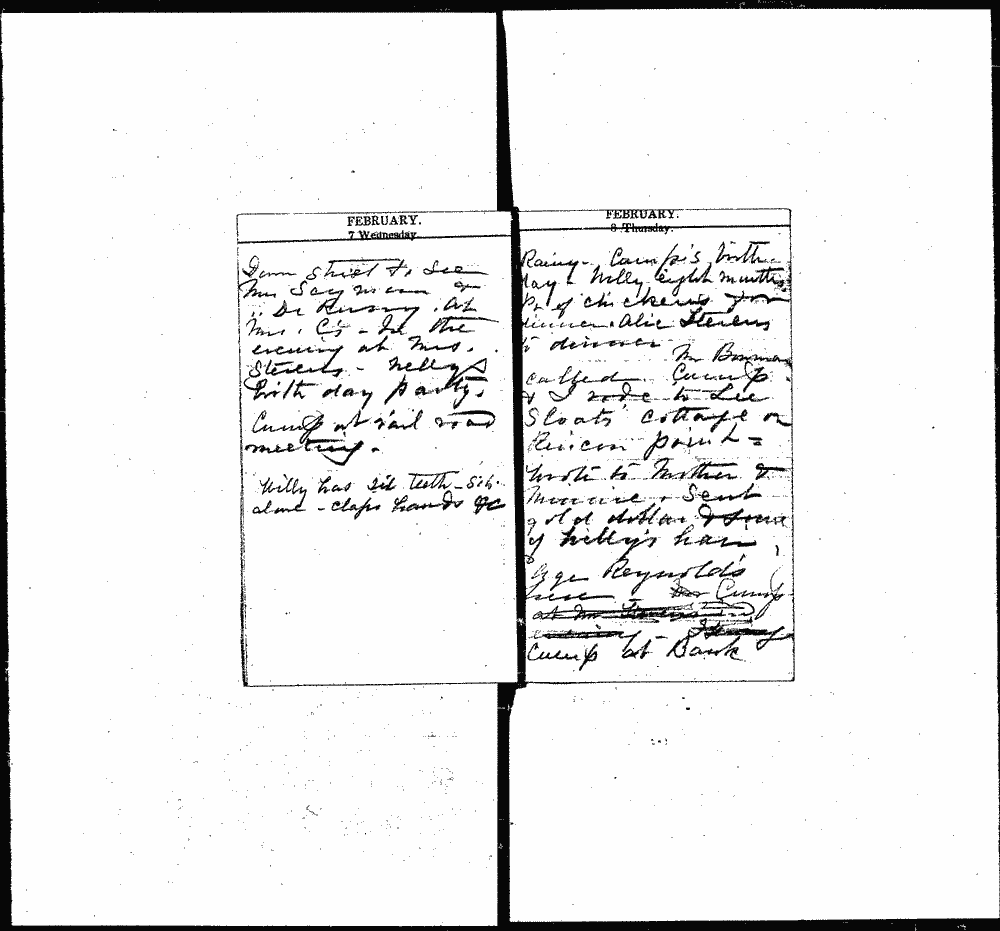 FEBRUARY.
7 Wednesday.
Down street to see
Mrs Sayman &
" Dr
at
Mrs. C's - In the
evening at Mrs.
Stevens - Nelly's
birth day party.
Cump at rail road
meeting.
Willy has six teeth - sits
alone - claps hands &c
FEBRUARY.
8 Thursday.
Rainy - Cump's birth-
day - Willy eight months
Pr of chickens for
dinner. Alice Stevens
to dinner
Mr Bowman
called Cump
& I rode to see
Sloats' cottage on
Rincon point =
Wrote to Mother &
Minnie. Sent
gold dollar & some
of Willy's hair,
Reynolds
here Cump
at Mr Stevens in
evening
Cump at Bank